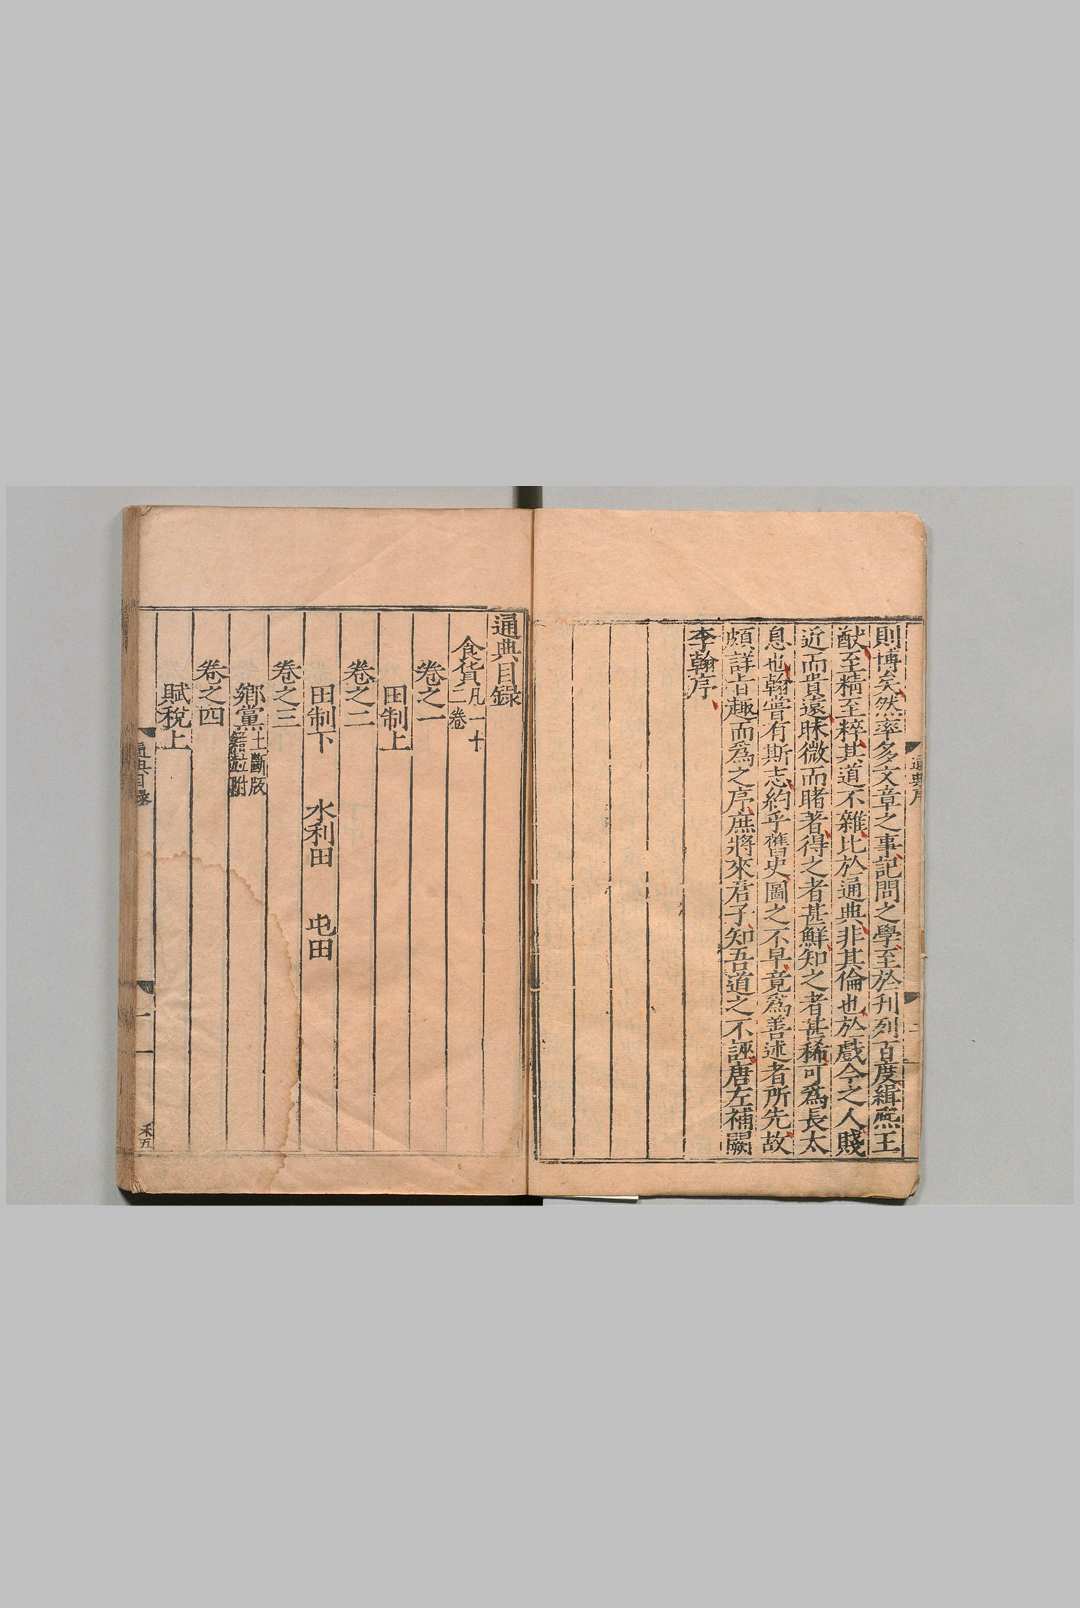 則博矣然率多文章之事記問之學至於刊列百度緝熙王
猷至精至粹其道不雜比於通典非其倫也於戲今之人賤
近而貴遠昧微而睹著得之者甚鮮知之者甚稀可爲長太
息也翰嘗有斯志約乎舊史圖之不早竟爲善述者所先故
頗詳旨趣而爲之序庶將來君子知吾道之不誣唐左補闕
李翰序
通典序
二
通典目録
食貨凡一十二卷
卷之一
田制上
卷之二
田制下 水利田 屯田
卷之三
鄉黨土斷版籍並附
卷之四
賦稅上
通典目録
一
禾五